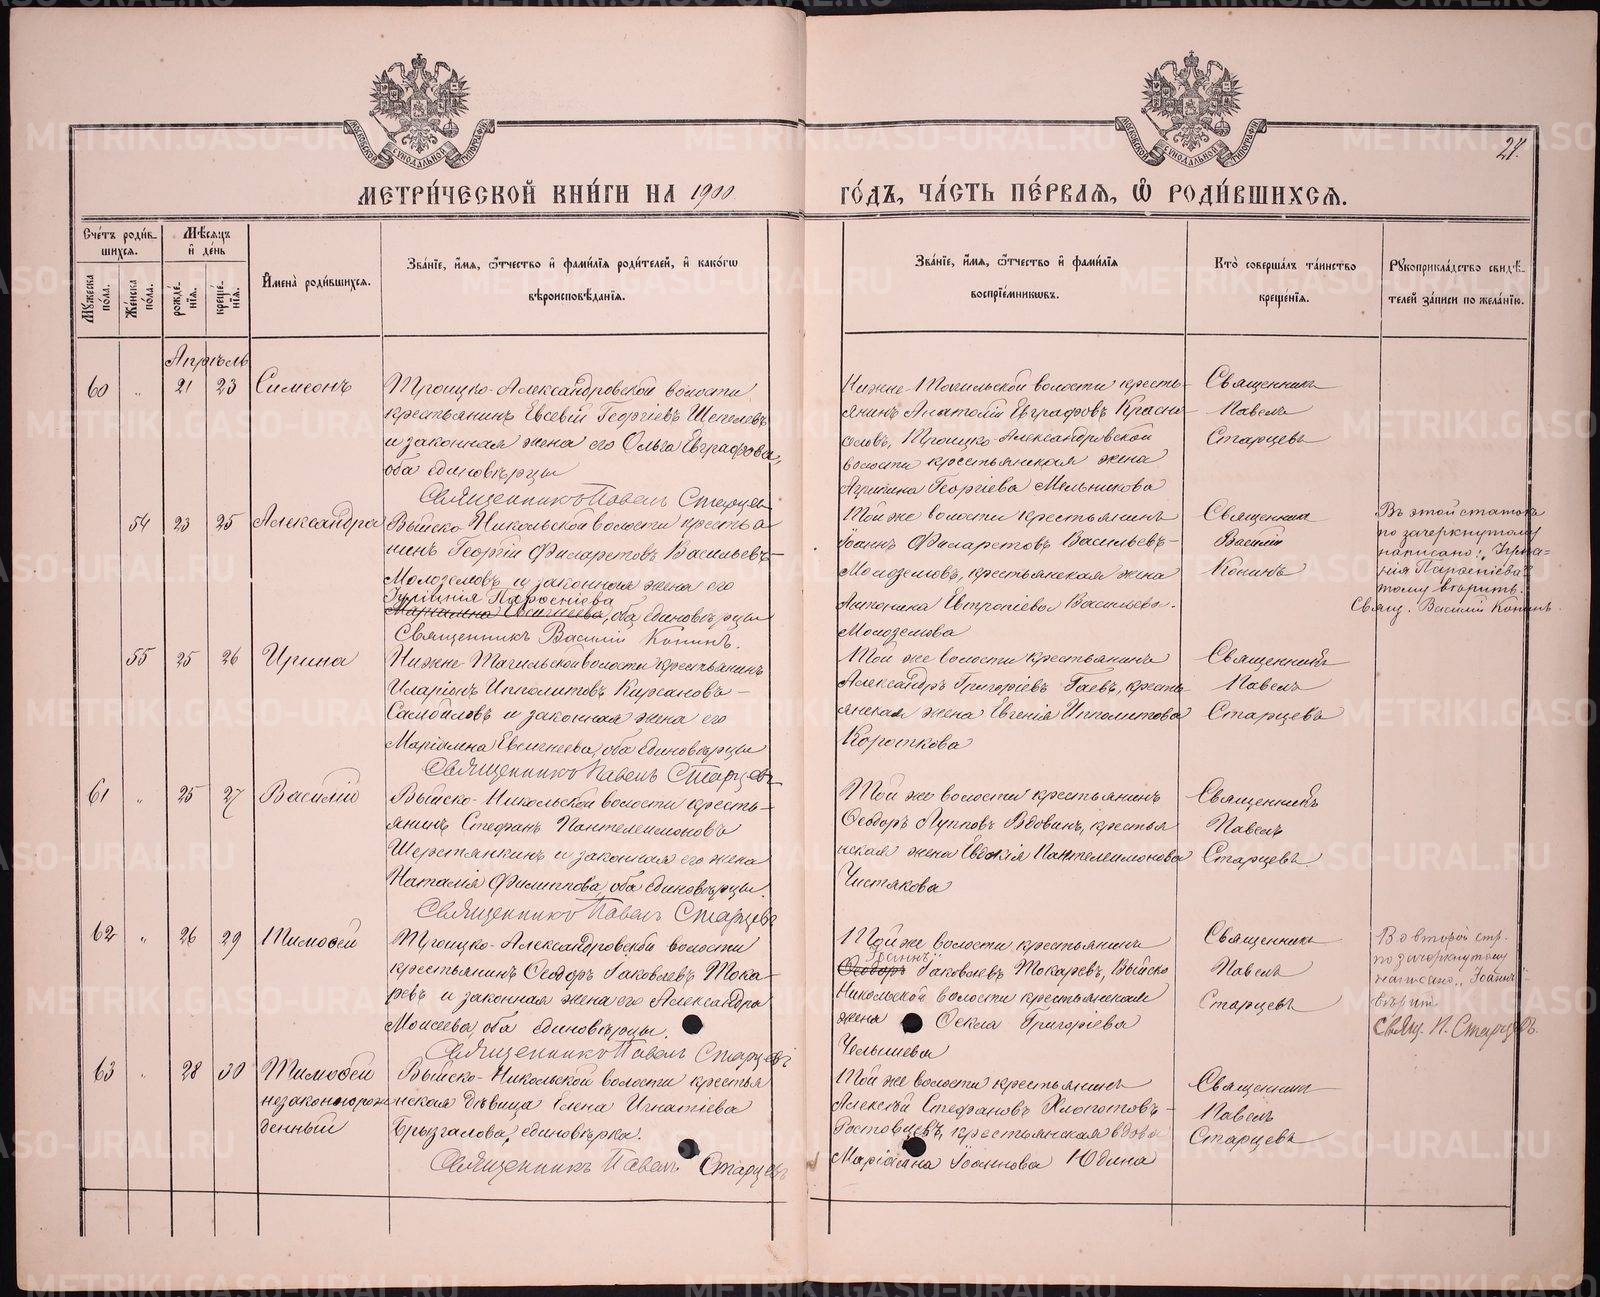 МЕТРИ́ЧЕСКОЙ КНИ́ГИ НА 1900
ГО́ДЪ, ЧА́СТЬ ПЕ́РВАЯ, Ѿ РОДИ́ВШИХСЯ.
24.
Сче́тъ роди́в-
шихся.
Му́жеска по́ла.
Же́нска по́ла.
Мѣ́сяцъ
и де́нь
рожде́-
нїя.
креще́-
нїя.
Имена̀ роди́вшихся.
Зва́нїе, и́мя, ѻ́тчество и фами́лїя роди́телей, и како́гѡ
вѣроисповѣ́данїя.
Зва́нїе, и́мя, ѻ́тчество и фами́лїя
воспрїе́мникѡвъ.
Кто̀ соверша́лъ та́инство
креще́нїя.
Рꙋкоприкла́дство свидѣ́-
телей за́писи по жела́нїю.
Апрѣль
60 " 21 23 Симеонъ
Троицко-Александровской волости
крестьянинъ Евсевій Георгіевъ Щепелевъ
и законная жена его Ольга Евграфова,
оба единовѣрцы
Священникъ Павелъ Старцевъ
Нижне-Тагильской волости кресть-
янинъ Анатолій Евграфовъ Красно-
словъ, Троицко-Александровской
волости крестьянская жена
Агрипина Георгіева Мельникова
Священникъ
Павелъ
Старцевъ
54 23 25 Александра
Выйско-Никольской волости крестья
нинъ Георгій Филаретовъ Васильевъ-
Молоземовъ и законная жена его
Ѵриннія Парѳеніева
Маріамна Евсигнеева, оба единовѣрцы
Священникъ Василій Конинъ.
Той же волости крестьянинъ
Іоаннъ Филаретовъ Васильевъ-
Молоземовъ, крестьянская жена
Антонина Евтропіева Васильева-
Молоземова
Священникъ
Василій
Конинъ
Въ этой статьѣ
по зачеркнутому
написано:
нія Парѳеніева"
тому вѣрить.
Свящ. Василій Конинъ.
55 25 26 Ирина
Нижне-Тагильской волости крестьянинъ
Иларіонъ Ипполитовъ Кирсановъ-
Самойловъ и законная жена его
Маріамна Евсигнеева, оба единовѣрцы
Священникъ Павелъ Старцевъ
Той же волости крестьянинъ
Александръ Григоріевъ Гаевъ, кресть-
янская жена Евгенія Ипполитова
Короткова
Священникъ
Павелъ
Старцевъ
61 " 25 27 Василій
Выйско-Никольской волости кресть-
янинъ Стефанъ Пантелеимоновъ
Шерстянкинъ и законная его жена
Наталія Филиппова, оба единовѣрцы.
Священникъ Павелъ Старцевъ
Той же волости крестьянинъ
Ѳеодоръ Лупповъ Вдовинъ, крестья
нская жена Евдокія Пантелеимонова
Чистякова
Священникъ
Павелъ
Старцевъ
62 " 26 29 Тимоѳей
Троицко-Александровской волости
крестьянинъ Ѳеодоръ Іаковлевъ Тока-
ревъ и законная жена его Александра
Моисеева, оба единовѣрцы.
Священникъ Павелъ Старцевъ
Той же волости крестьянинъ
Іоаннъ
Ѳеодоръ Іаковлевъ Токаревъ, Выйско
Никольской волости крестьянская
жена Ѳекла Григоріева
Челышева
Священникъ
Павелъ
Старцевъ
Во второй стр.
по зачеркнутому
написано „Іоаннъ"
вѣрить
Свящ. П. Старцевъ.
63 " 28 30 Тимоѳей
незаконнорож
денный
Выйско-Никольской волости крестья
нская дѣвица Елена Игнатіева
Брызгалова, единовѣрка.
Священникъ Павелъ Старцевъ
Той же волости крестьянинъ
Алексѣй Стефановъ Хлопотовъ-
Ростовцевъ, крестьянская вдова
Маріамна Іоаннова Юдина
Священникъ
Павелъ
Старцевъ
METRIKI.GASO-URAL.RU